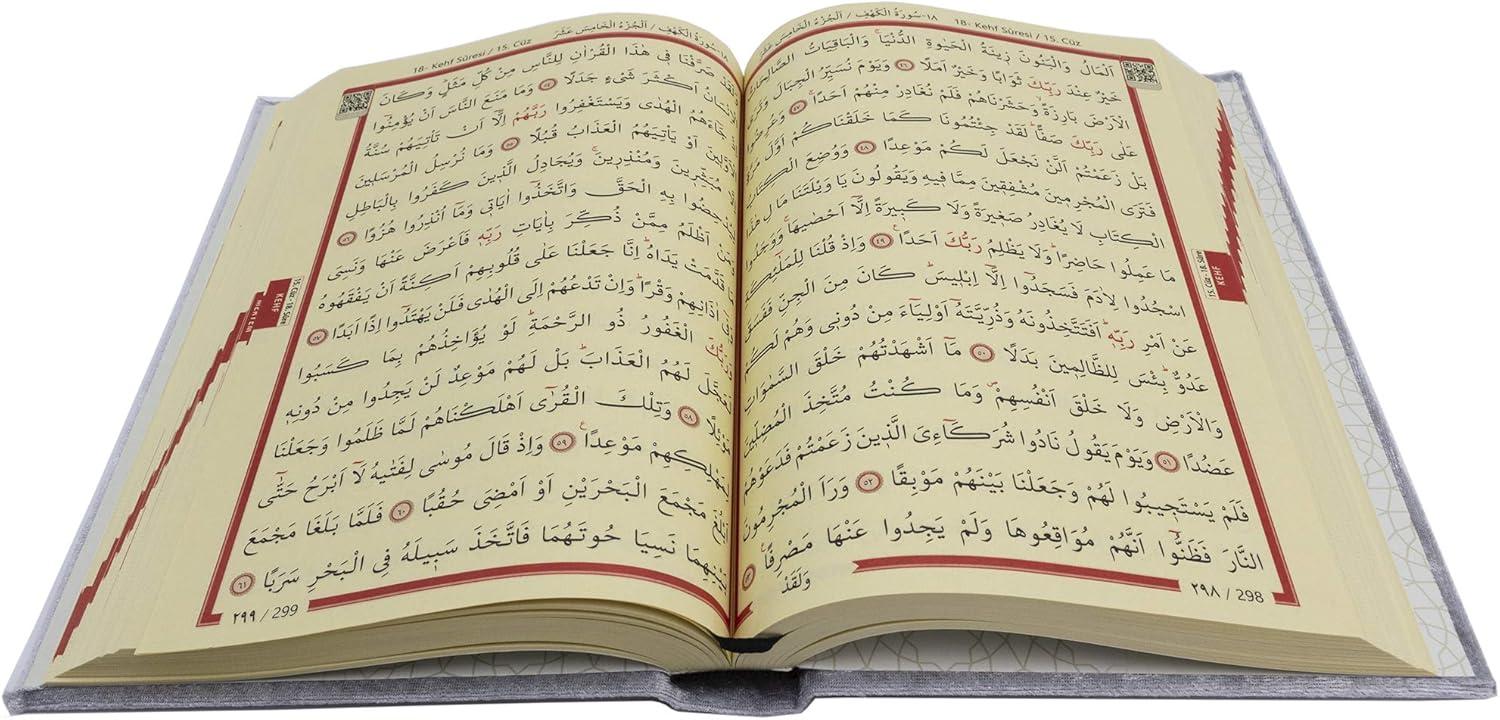 ١٨-سُورَةُ الْكَهْفِ / اَلْجُزْءُ الْخَامِسَ عَشَرَ 18- Kehf Sûresi / 15. Cüz
اَلْمَالُ وَالْبَنُونَ ز۪ينَةُ الْحَيٰوةِ الدُّنْيَاۚ وَالْبَاقِيَاتُ الصَّالِحَاتُ
خَيْرٌ عِنْدَ رَبِّكَ ثَوَابًا وَخَيْرٌ اَمَلًا ٤٦ وَيَوْمَ نُسَيِّرُ الْجِبَالَ وَتَرَى
الْاَرْضَ بَارِزَةًۙ وَحَشَرْنَاهُمْ فَلَمْ نُغَادِرْ مِنْهُمْ اَحَدًاۚ ٤٧ وَعُرِضُوا
عَلٰى رَبِّكَ صَفًّاۜ لَقَدْ جِئْتُمُونَا كَمَا خَلَقْنَاكُمْ اَوَّلَ مَرَّةٍۘ
بَلْ زَعَمْتُمْ اَلَّنْ نَجْعَلَ لَكُمْ مَوْعِدًا ٤٨ وَوُضِعَ الْكِتَابُ
فَتَرَى الْمُجْرِم۪ينَ مُشْفِق۪ينَ مِمَّا ف۪يهِ وَيَقُولُونَ يَا وَيْلَتَنَا مَا لِ هٰذَا
الْكِتَابِ لَا يُغَادِرُ صَغ۪يرَةً وَلَا كَب۪يرَةً اِلَّٓا اَحْصٰيهَاۚ وَوَجَدُوا
مَا عَمِلُوا حَاضِرًاۜ وَلَا يَظْلِمُ رَبُّكَ اَحَدًا۟ ٤٩ وَاِذْ قُلْنَا لِلْمَلٰٓئِكَةِ
اسْجُدُوا لِاٰدَمَ فَسَجَدُٓوا اِلَّٓا اِبْل۪يسَۜ كَانَ مِنَ الْجِنِّ فَفَسَقَ
عَنْ اَمْرِ رَبِّه۪ۜ اَفَتَتَّخِذُونَهُ وَذُرِّيَّتَهُٓ اَوْلِيَٓاءَ مِنْ دُون۪ي وَهُمْ لَكُمْ
عَدُوٌّۜ بِئْسَ لِلظَّالِم۪ينَ بَدَلًا ٥٠ مَٓا اَشْهَدْتُهُمْ خَلْقَ السَّمٰوَاتِ
وَالْاَرْضِ وَلَا خَلْقَ اَنْفُسِهِمْۖ وَمَا كُنْتُ مُتَّخِذَ الْمُضِلّ۪ينَ
عَضُدًا ٥١ وَيَوْمَ يَقُولُ نَادُوا شُرَكَٓاءِيَ الَّذ۪ينَ زَعَمْتُمْ فَدَعَوْهُمْ
فَلَمْ يَسْتَج۪يبُوا لَهُمْ وَجَعَلْنَا بَيْنَهُمْ مَوْبِقًا ٥٢ وَرَاَ الْمُجْرِمُونَ
النَّارَ فَظَنُّٓوا اَنَّهُمْ مُوَاقِعُوهَا وَلَمْ يَجِدُوا عَنْهَا مَصْرِفًا۟
وَلَقَدْ
٢٩٨ / 298
15. Cüz - 18. Sûre
KEHF
18- Kehf Sûresi / 15. Cüz ١٨-سُورَةُ الْكَهْفِ / اَلْجُزْءُ الْخَامِسَ عَشَرَ
صَرَّفْنَا ف۪ي هٰذَا الْقُرْاٰنِ لِلنَّاسِ مِنْ كُلِّ مَثَلٍۜ وَكَانَ
اَكْثَرَ شَيْءٍ جَدَلًا ٥٤ وَمَا مَنَعَ النَّاسَ اَنْ يُؤْمِنُٓوا
جَٓاءَهُمُ الْهُدٰى وَيَسْتَغْفِرُوا رَبَّهُمْ اِلَّٓا اَنْ تَأْتِيَهُمْ سُنَّةُ
اَوْ يَأْتِيَهُمُ الْعَذَابُ قُبُلًا ٥٥ وَمَا نُرْسِلُ الْمُرْسَل۪ينَ
مُبَشِّر۪ينَ وَمُنْذِر۪ينَۚ وَيُجَادِلُ الَّذ۪ينَ كَفَرُوا بِالْبَاطِلِ
بِهِ الْحَقَّ وَاتَّخَذُٓوا اٰيَات۪ي وَمَٓا اُنْذِرُوا هُزُوًا ٥٦
اَظْلَمُ مِمَّنْ ذُكِّرَ بِاٰيَاتِ رَبِّه۪ فَاَعْرَضَ عَنْهَا وَنَسِيَ
قَدَّمَتْ يَدَاهُۜ اِنَّا جَعَلْنَا عَلٰى قُلُوبِهِمْ اَكِنَّةً اَنْ يَفْقَهُوهُ
اٰذَانِهِمْ وَقْرًاۜ وَاِنْ تَدْعُهُمْ اِلَى الْهُدٰى فَلَنْ يَهْتَدُٓوا اِذًا اَبَدًا ٥٧
وَرَبُّكَ الْغَفُورُ ذُو الرَّحْمَةِۜ لَوْ يُؤَاخِذُهُمْ بِمَا كَسَبُوا
لَعَجَّلَ لَهُمُ الْعَذَابَۜ بَلْ لَهُمْ مَوْعِدٌ لَنْ يَجِدُوا مِنْ دُونِه۪
مَوْئِلًا ٥٨ وَتِلْكَ الْقُرٰٓى اَهْلَكْنَاهُمْ لَمَّا ظَلَمُوا وَجَعَلْنَا
لِمَهْلِكِهِمْ مَوْعِدًا۟ ٥٩ وَاِذْ قَالَ مُوسٰى لِفَتٰيهُ لَٓا اَبْرَحُ حَتّٰٓى
اَبْلُغَ مَجْمَعَ الْبَحْرَيْنِ اَوْ اَمْضِيَ حُقُبًا ٦٠ فَلَمَّا بَلَغَا مَجْمَعَ
بَيْنِهِمَا نَسِيَا حُوتَهُمَا فَاتَّخَذَ سَب۪يلَهُ فِي الْبَحْرِ سَرَبًا ٦١
٢٩٩ / 299
15. Cüz - 18. Sûre
KEHF
MERYEM